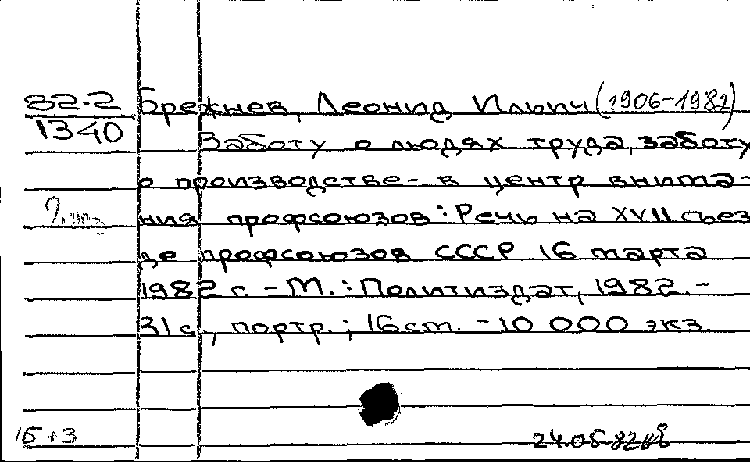 82-2 Брежнев, Леонид Ильич (1906-1982)
1340 Заботу о людях труда, заботу
о производстве - в центр внима-
ния профсоюзов: Речь на XVII съез
де профсоюзов СССР 16 марта
1982 г. - М.: Политиздат, 1982. -
31 с., портр.; 16 cm. - 10 000 экз.
15+3 24.05.82